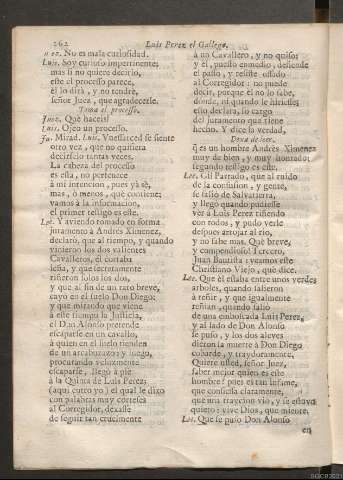 262
Luis Perez el Gallego.
Juez. No es mala curiosidad.
Luis. Soy curioso impertinente;
mas si no quiere decirlo,
este el processo parece,
él lo dirá, y no tendré,
señor Juez, que agradecerle.
Toma el processo.
Juez. Què haceis?
Luis. Ojeo un processo.
Ju. Mirad. Luis. Vuessarced se siente
otra vez, que no quisiera
decirselo tantas veces.
La cabeza del processo
es esta, no pertenece
à mi intencion, pues yà sè,
mas, ò menos, què contiene;
vamos à la informacion,
el primer testigo es este.
Lee. Y aviendo tomado en forma
juramento à Andrès Ximenez,
declarò, que al tiempo, y quando
vinieron los dos valientes
Cavalleros, él cortaba
leña, y que secretamente
riñeron solos los dos,
y que al fin de un rato breve,
cayò en el suelo Don Diego;
y que mirando que viene
à este tiempo la Justicia,
el Don Alonso pretende
escaparse en un cavallo,
à quien en el suelo tienden
de un arcabuzazo; y luego,
procurando velozmente
escaparse, llegò à pie
à la Quinta de Luis Perez;
(aqui entro yo) el qual le dixo
con palabras muy corteses
al Corregidor, dexasse
de seguir tan cruelmente
à un Cavallero, y no quiso;
y èl, puesto enmedio, defiende
el passo, y resiste ossado
al Corregidor: no puede
decir, porque èl no lo sabe,
dònde, ni quando le hiriesse:
esto declara, so cargo
del juramento que tiene
hecho. Y dice la verdad,
Dexa de leer.
q̃ es un hombre Andrès Ximenez
muy de bien, y muy honrado:
segundo testigo es este.
Lee. Gil Parrado, que al ruido
de la confusion, y gente,
se saliò de Salvatierra,
y llegò quando pudiesse
ver à Luis Perez riñendo
con todos, y pudo verle
despues arrojar al rio,
y no sabe mas. Què breve,
y compendioso! Tercero,
Juan Bautista: veamos este
Christiano Viejo, què dice.
Lee. Que èl estaba entre unos verdes
arboles, quando salieron
à reñir, y que igualmente
reñian, quando saliò
de una emboscada Luis Perez,
y al lado de Don Alonso
se puso, y los dos aleves
dieron la muerte à Don Diego
cobarde, y traydoramente.
Quiere usted, señor Juez,
saber mejor quien es este
hombre? pues es tan infame,
que confiessa claramente,
que viò una traycion, y se estuvo
quieto: vive Dios, que miente.
Lee. Que se puso Don Alonso
en